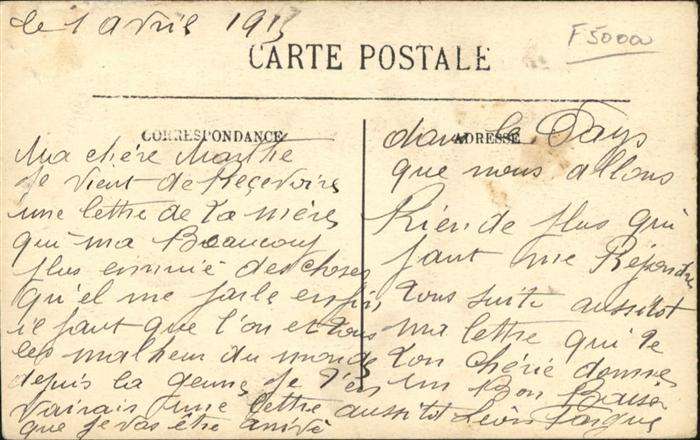 le 1 avril 1915
F5000
CARTE POSTALE
CORRESPONDANCE
Ma chére Marthe
Je vient de Reçevoire
une lettre de Ta mère
qui ma Beaucoup
plus ennuié des choses
qu'el me parle enfin
il faut que l'on et tous
les malheur du monde
depuis la Je t'en
vairais une lettre aussitot
que Je vas être arrivé
ADRESSE
dans le Pays
que nous allons
Rien de plus qui
faut me Répondre
tous suite aussitot
ma lettre qui te
ton Chérie donne
un Bon Baisé
Léon